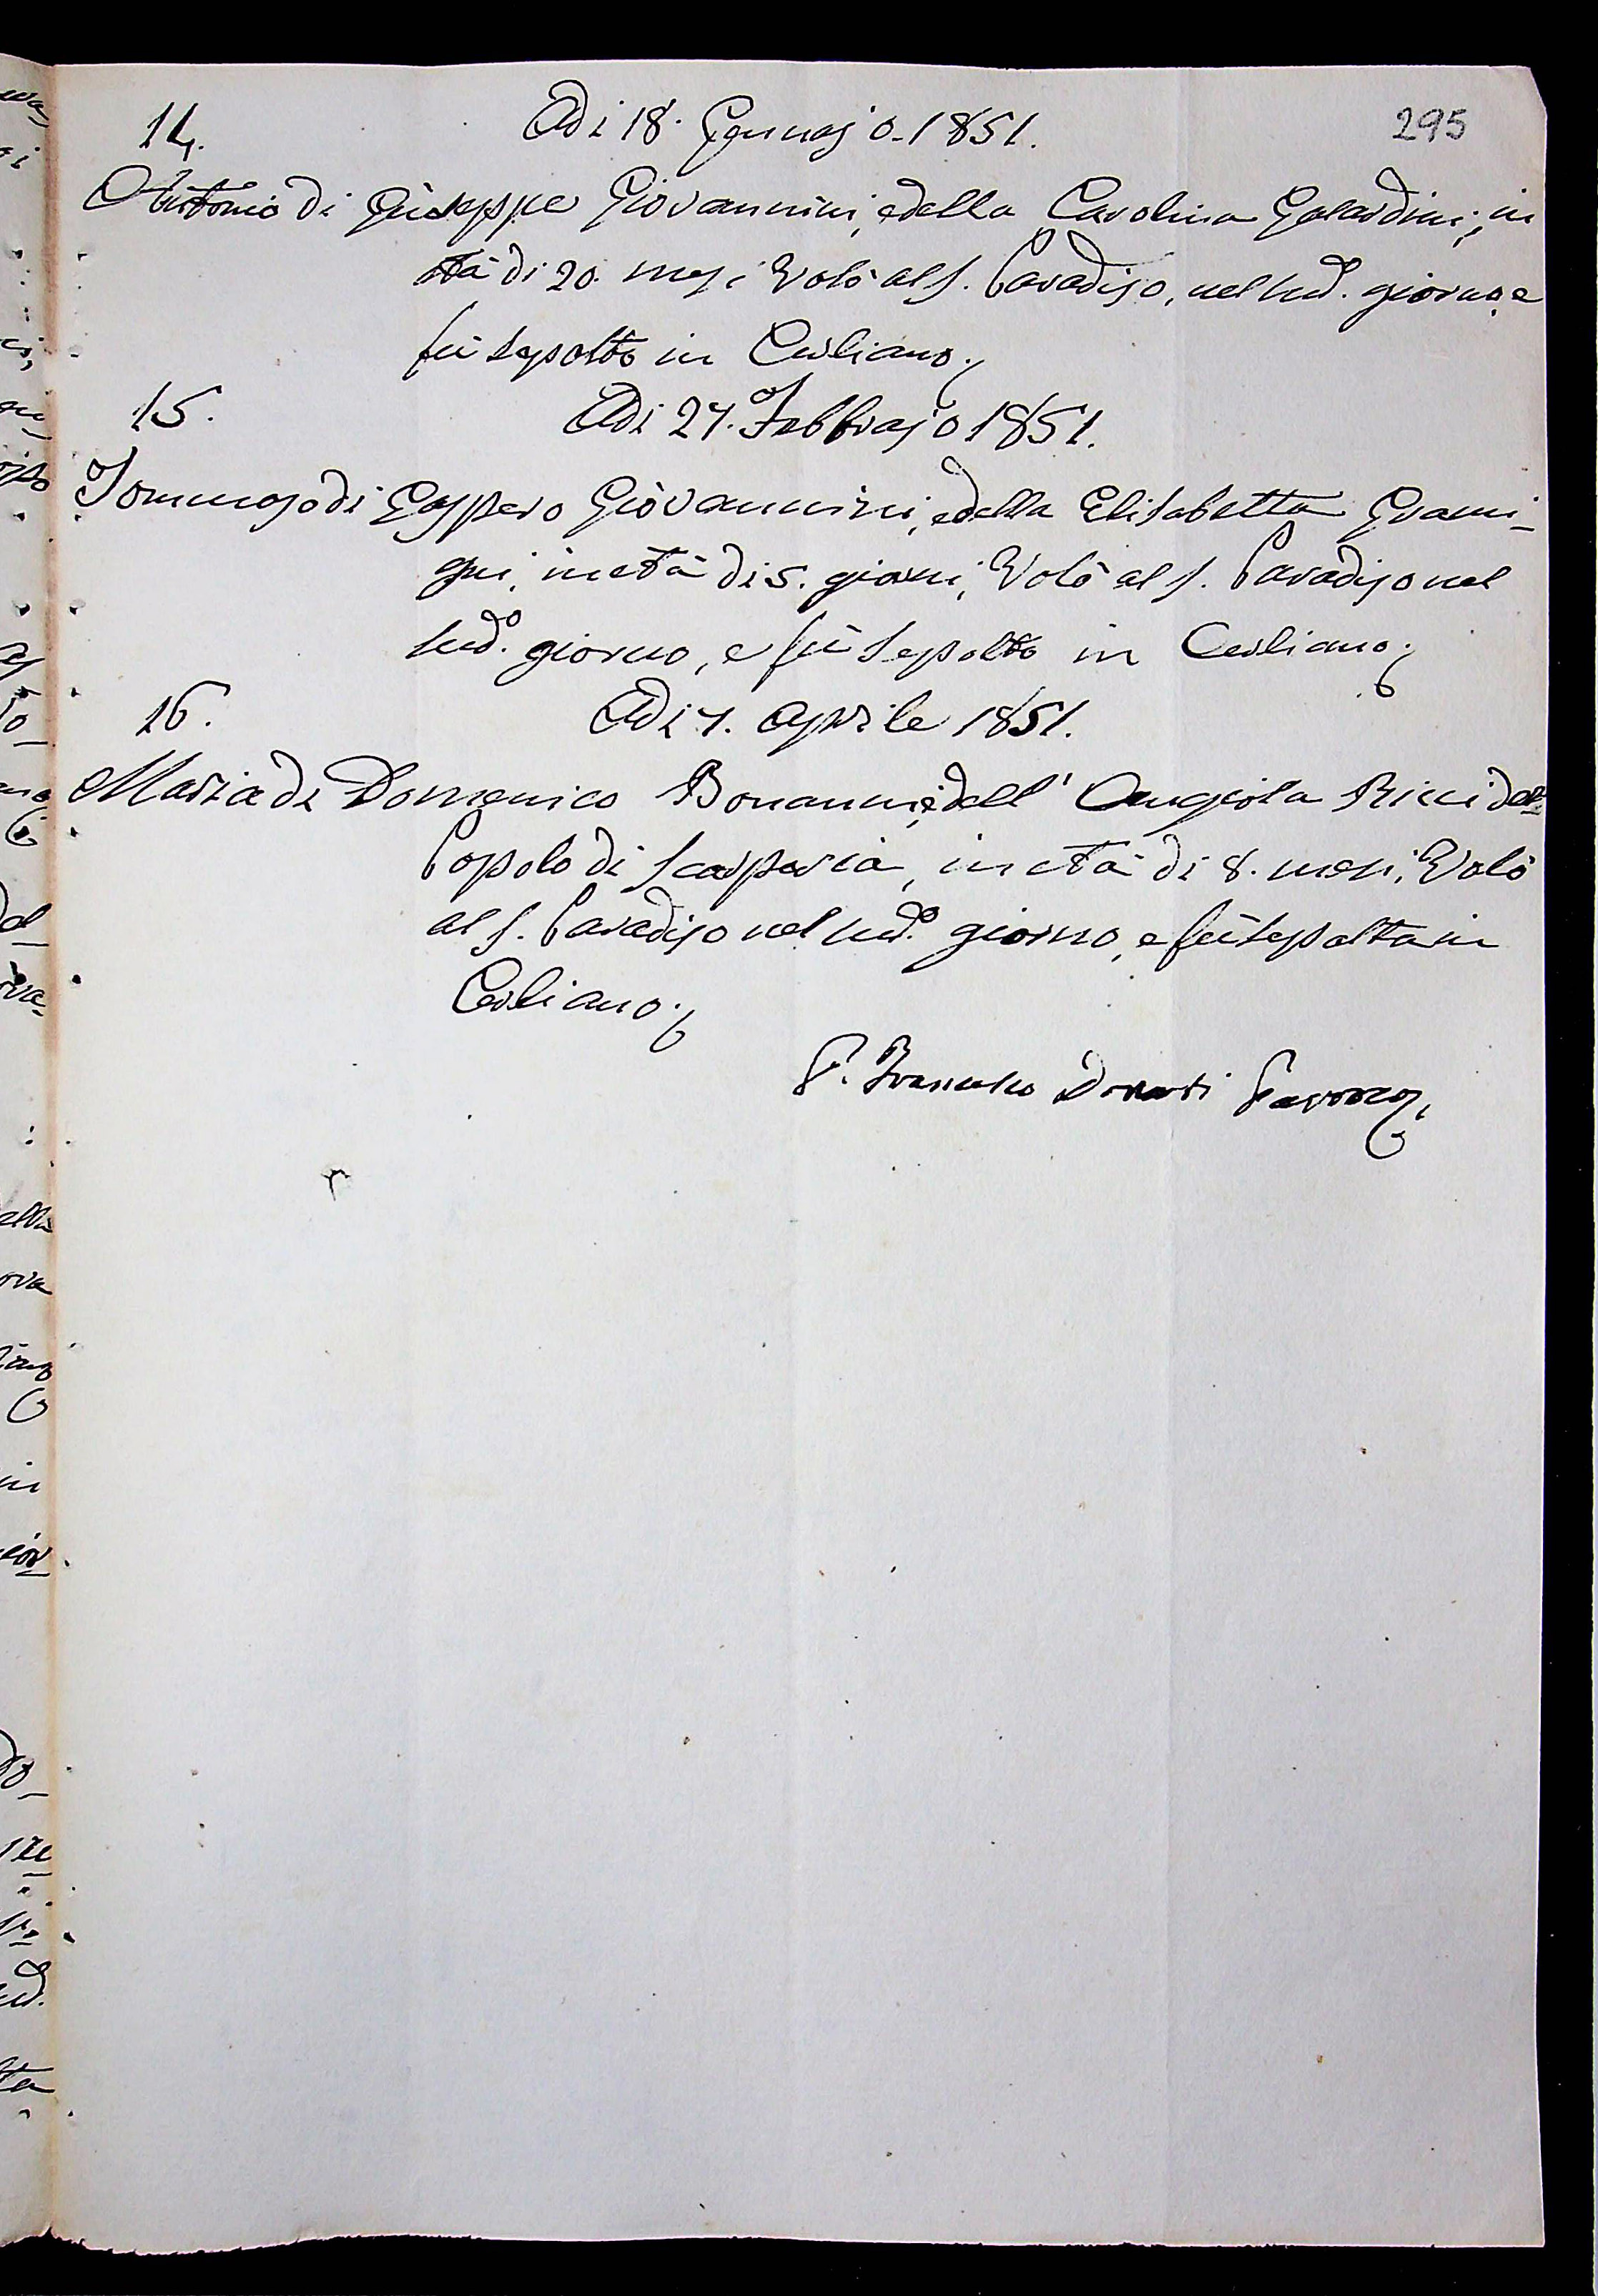 295
14. Adi 18. Gennajo. 1851.
Antonio di Giuseppe Giovannini, e della Carolina Galardini, in
età di 20. mesi Volò al S. Paradiso, nel sud.o giorno, e
fù sepolto in Cerliano.
15. Adi 27. Febbrajo 1851.
Tommaso di Gaspero Giovannini, e della Elisabetta Grami-
gni, in età di 5. giorni, Volò al S. Paradiso nel
sud.o giorno, e fù Sepolto in Cerliano.
16. Adi 7. Aprile 1851.
Maria di Domenico Bonanni, e dell' Angiola Ricci del
Popolo di Scarperia, in età di 8. mesi, Volò
al S. Paradiso nel sud.o giorno, e fù sepolta in
Cerliano.
P. Francesco Donati Parroco